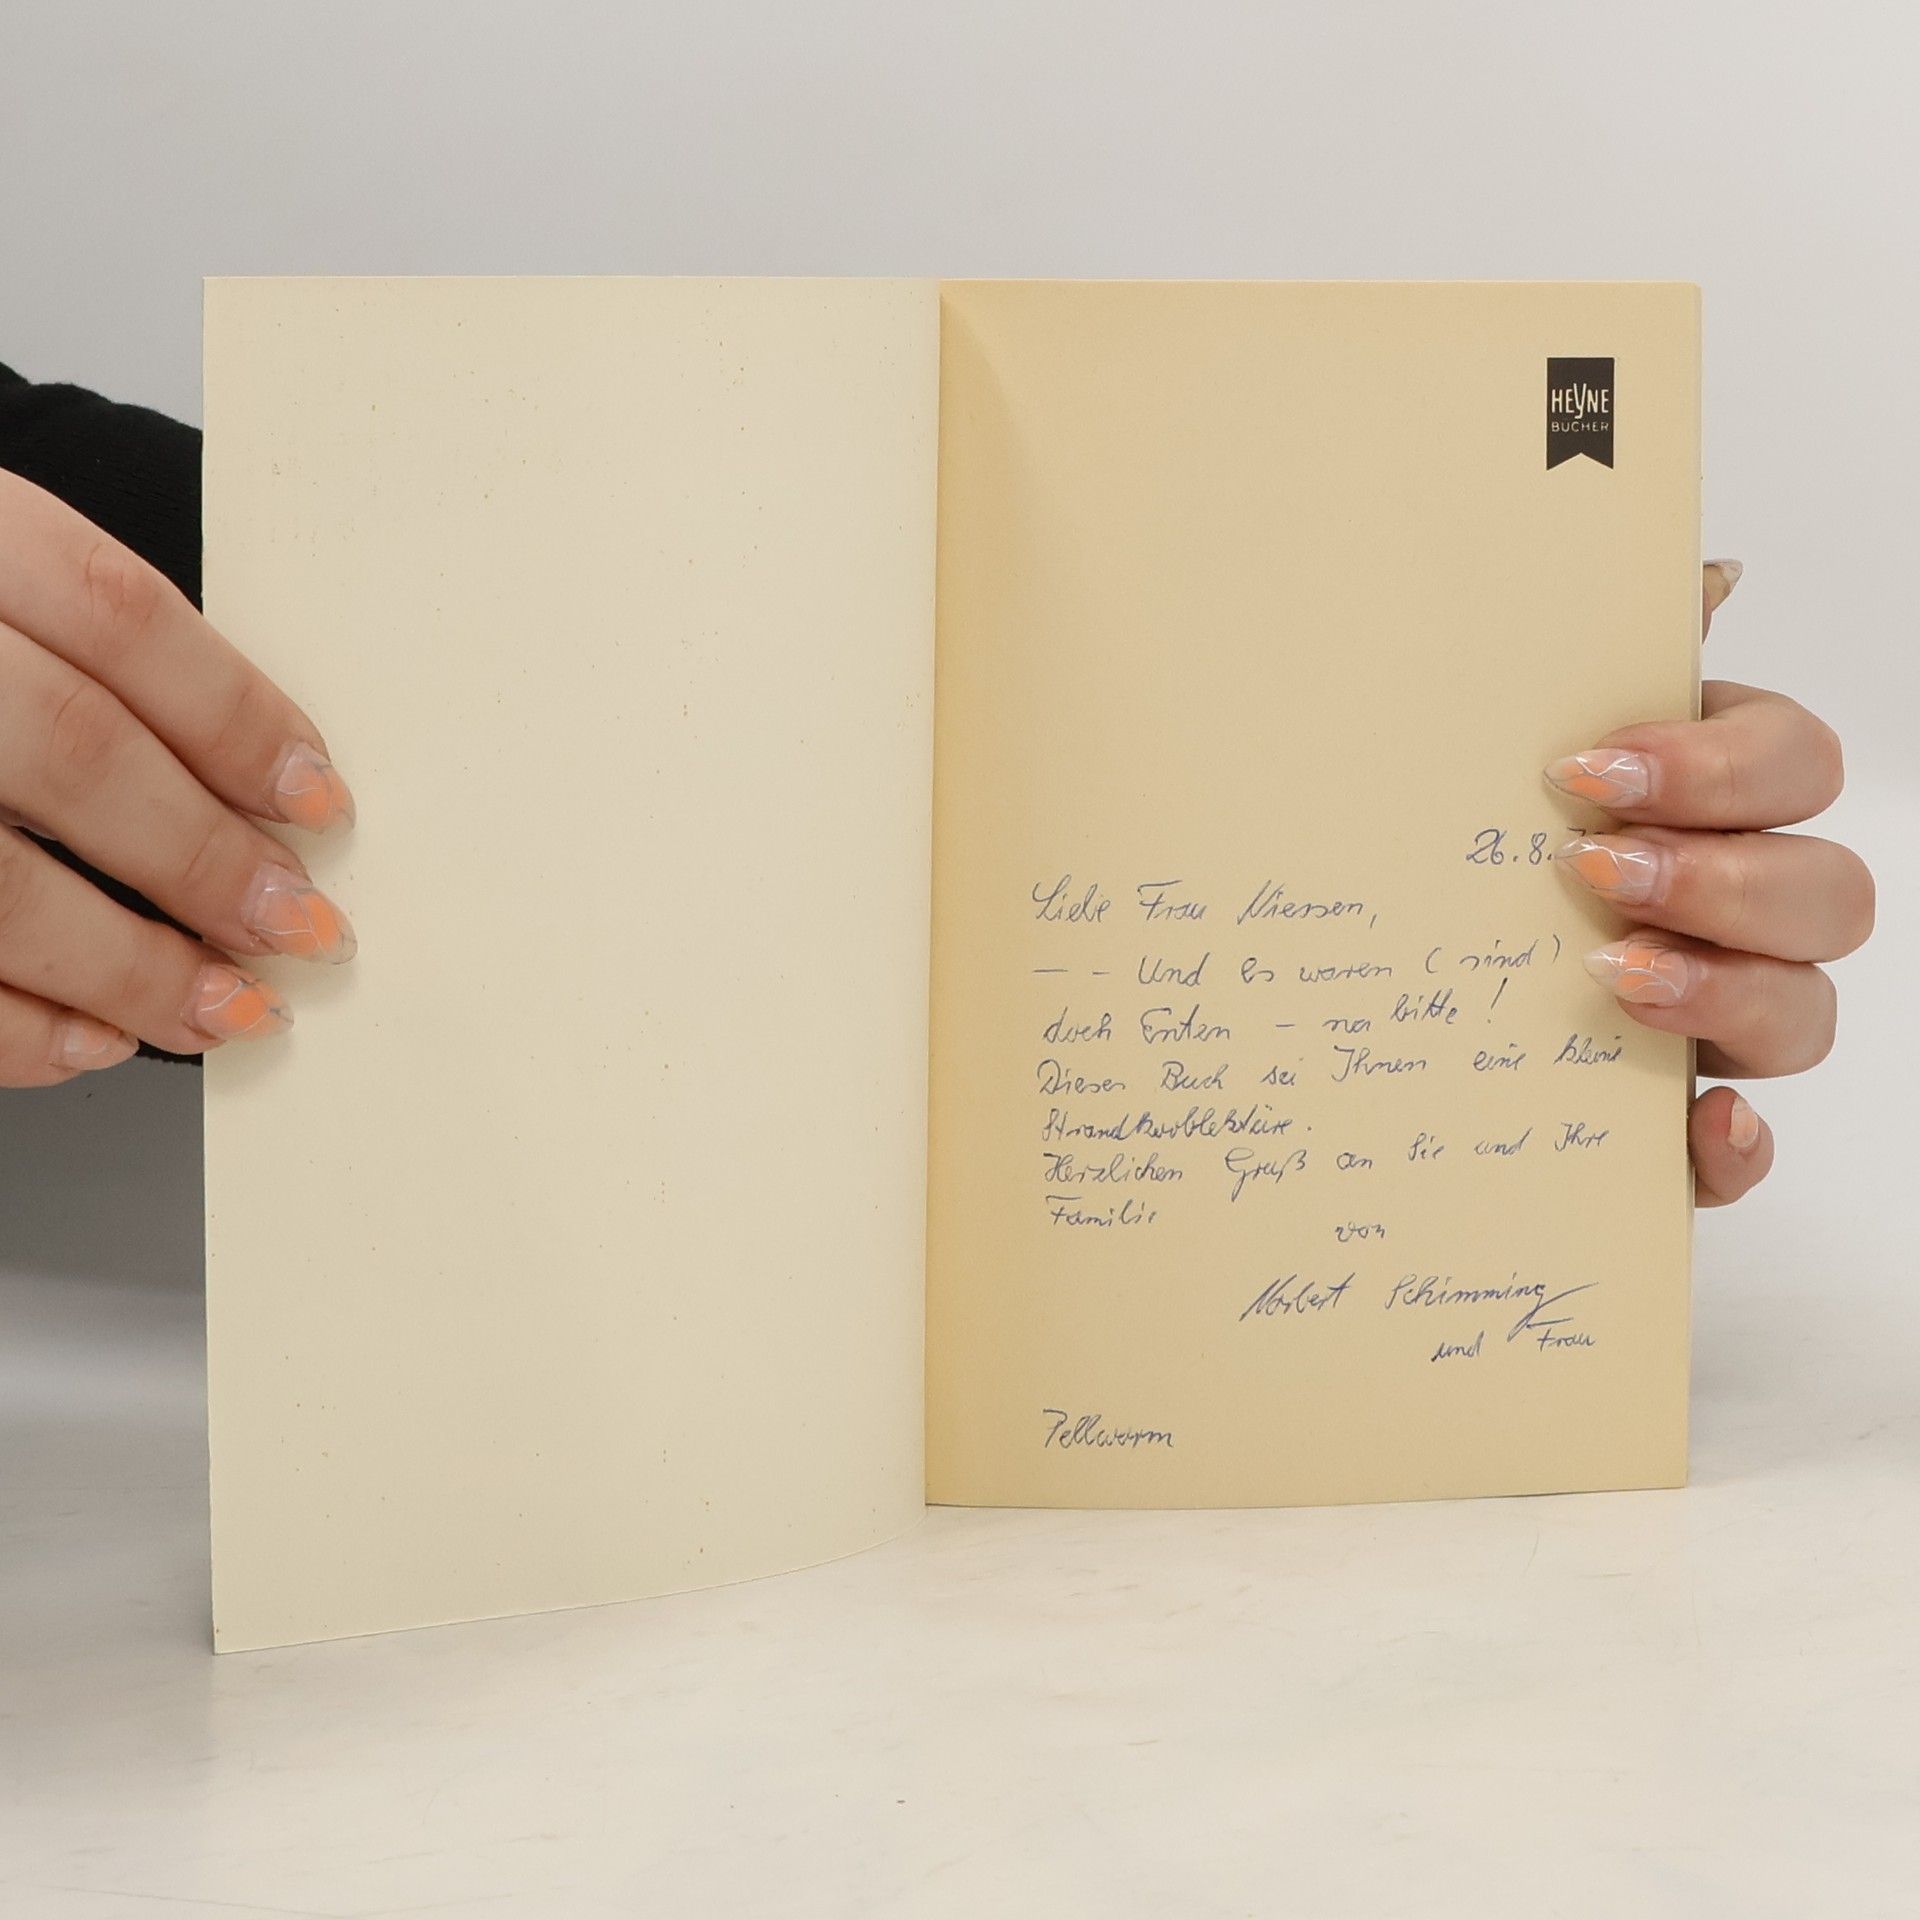 HEYNE
BÜCHER
26.8.
Liebe Frau Niessen,
— - Und es waren (sind)
doch Enten - na bitte!
Dieses Buch sei Ihnen eine kleine
Strandkorblektüre.
Herzlichen Gruß an Sie und Ihre
Familie
von
Norbert Schimming
und Frau
Pellworm